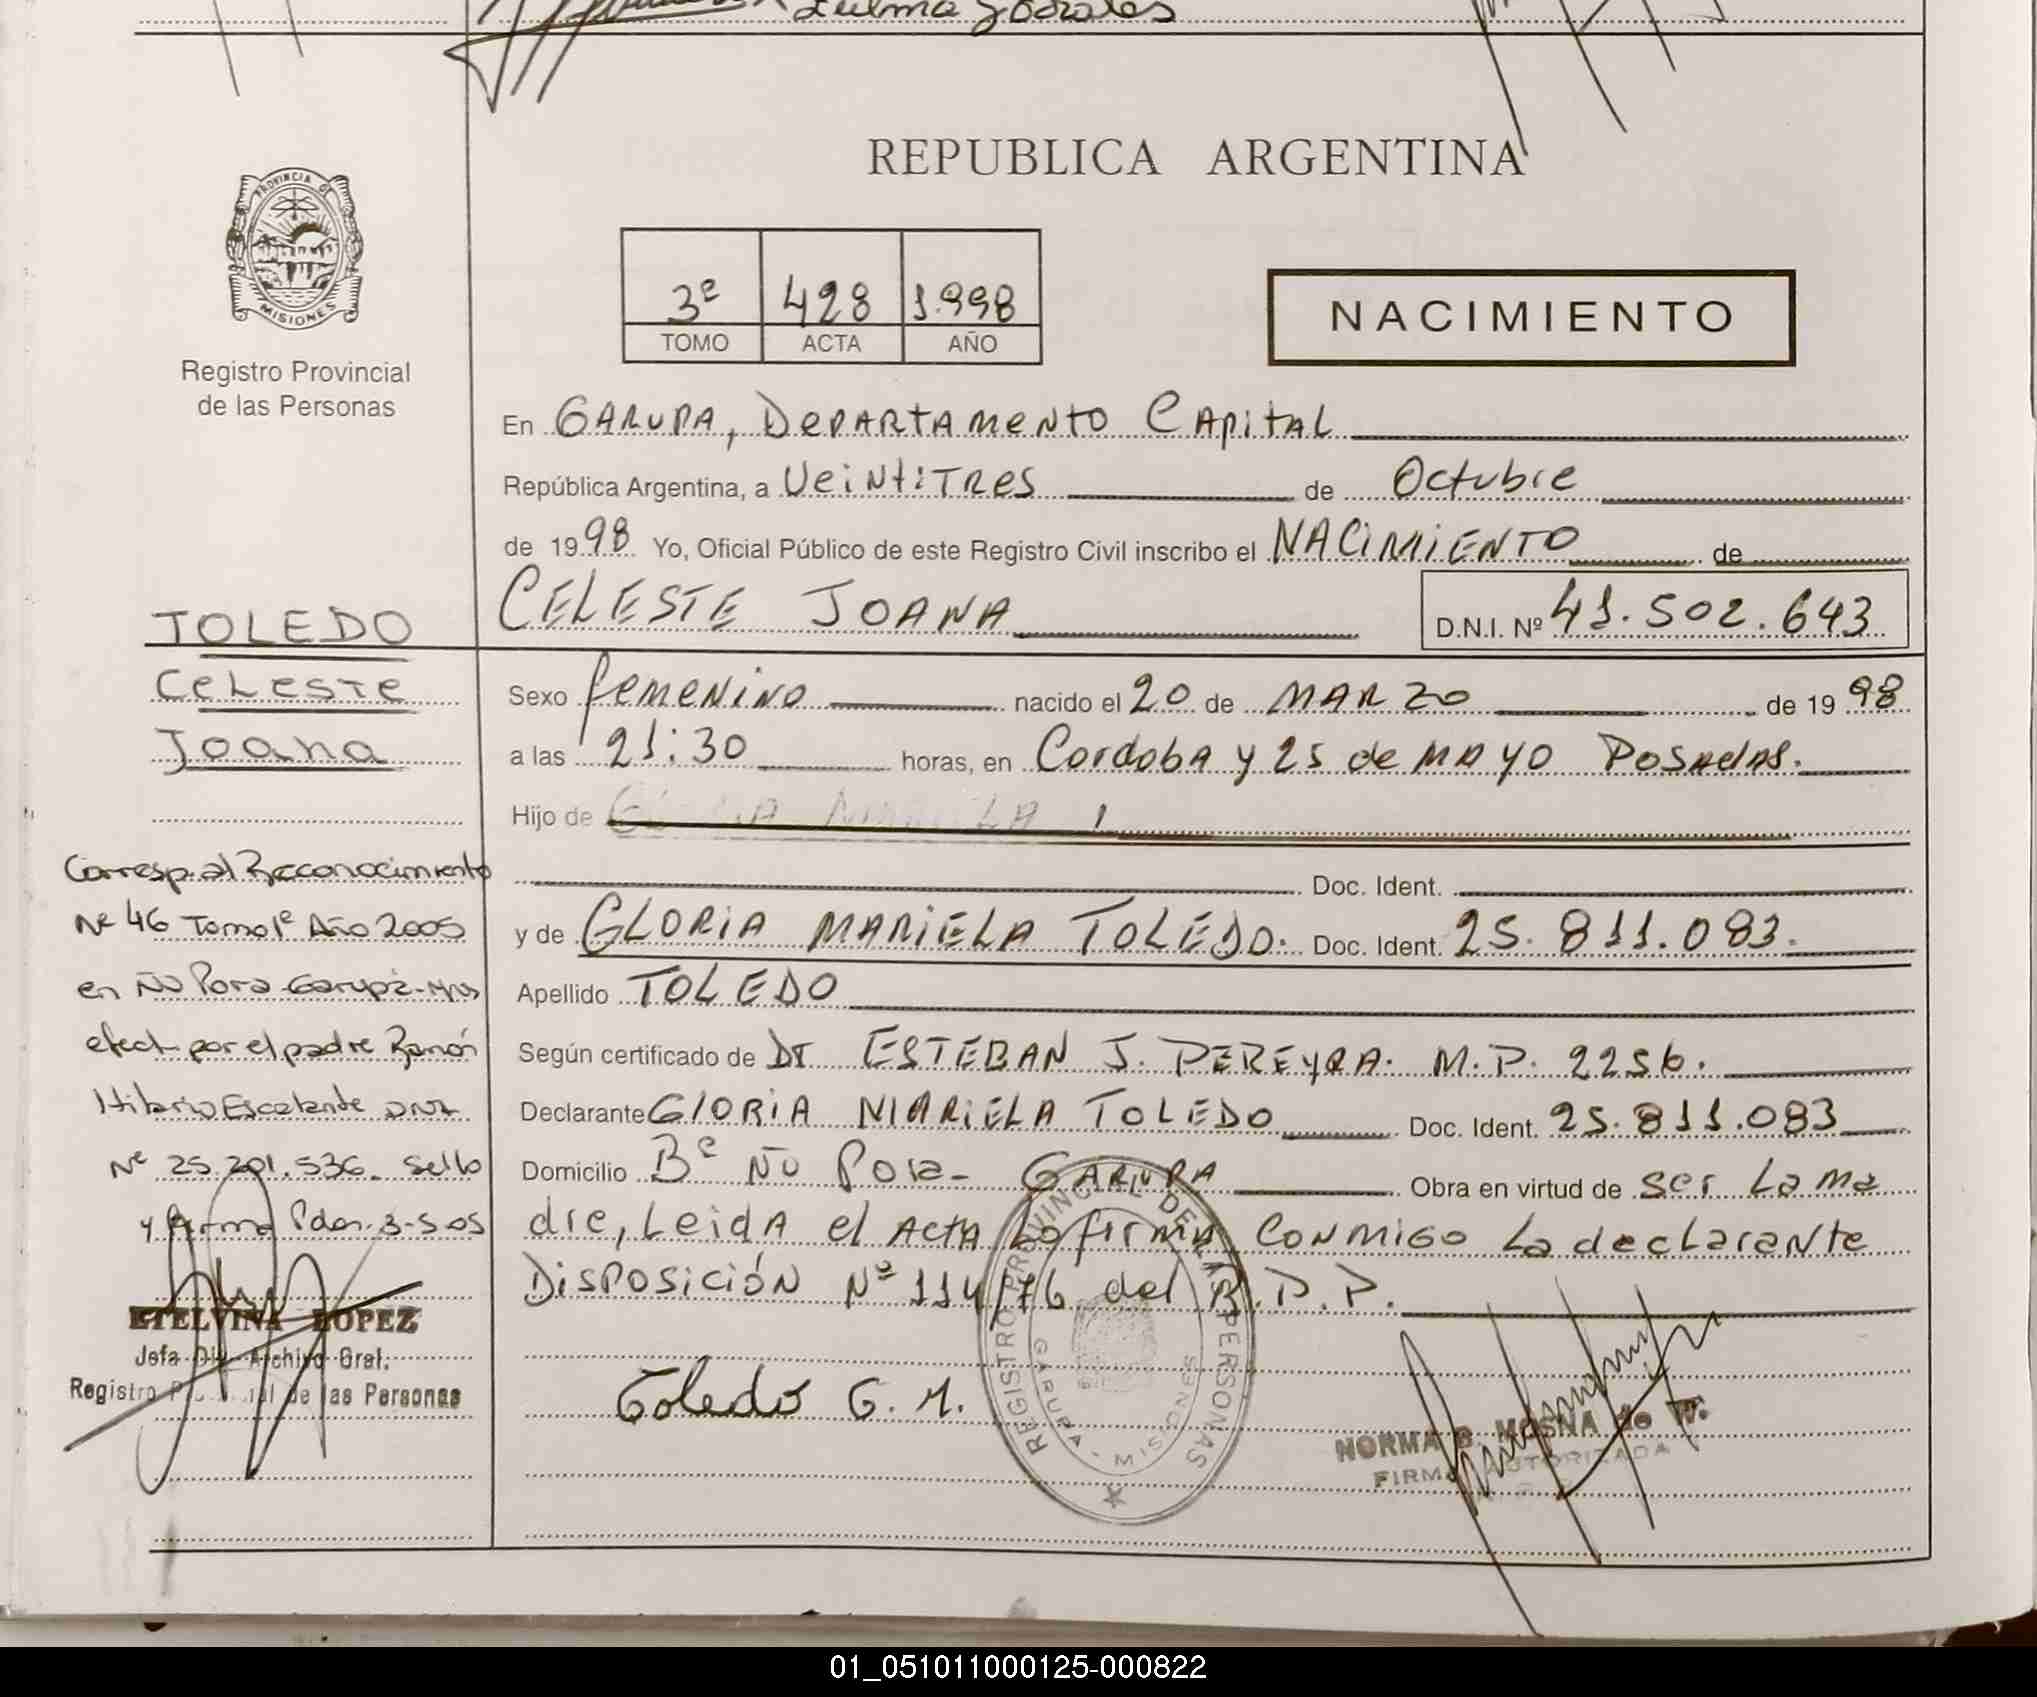 Zulma Gonzales
PROVINCIA DE
MISIONES
Registro Provincial
de las Personas
REPUBLICA ARGENTINA
3º 428 1.998
TOMO ACTA AÑO
NACIMIENTO
En GARUPA, DEPARTAMENTO CAPITAL
República Argentina, a VEINTITRES de Octubre
de 1998 Yo, Oficial Público de este Registro Civil inscribo el NACIMIENTO de
CELESTE JOANA D.N.I. Nº 41.502.643
Sexo femenino nacido el 20 de MARZO de 1998
a las 21:30 horas, en Cordoba y 25 de MAYO POSADAS.
Hijo de
Doc. Ident.
y de GLORIA MARIELA TOLEDO. Doc. Ident. 25.811.083.
Apellido TOLEDO
Según certificado de Dr ESTEBAN J. PEREYRA. M.P. 2256.
Declarante GLORIA MARIELA TOLEDO Doc. Ident. 25.811.083
Domicilio Bº ÑU Pora - GARUPA Obra en virtud de ser La ma
dre, Leida el ACTA La firma CONMIGO La declarante
DISPOSICIÓN Nº 114/76 del R.P.P.
Toledo G. M.
REGISTRO PROVINCIAL DE LAS PERSONAS
GARUPA - MISIONES
NORMA B. MOSNA de W.
FIRMA AUTORIZADA
TOLEDO
CELESTE
Joana
Corresp. al Reconocimiento
Nº 46 Tomo 1º Año 2005
en Ñu Pora - Garupá - Mns
efect. por el padre Ramón
Hilario Escalante DNI
Nº 25.201.536_ Sello
y firma Pdas. 3-5-05
ETELVINA LOPEZ
Jefa Div. Archivo Gral.
Registro Provincial de las Personas
01_051011000125-000822